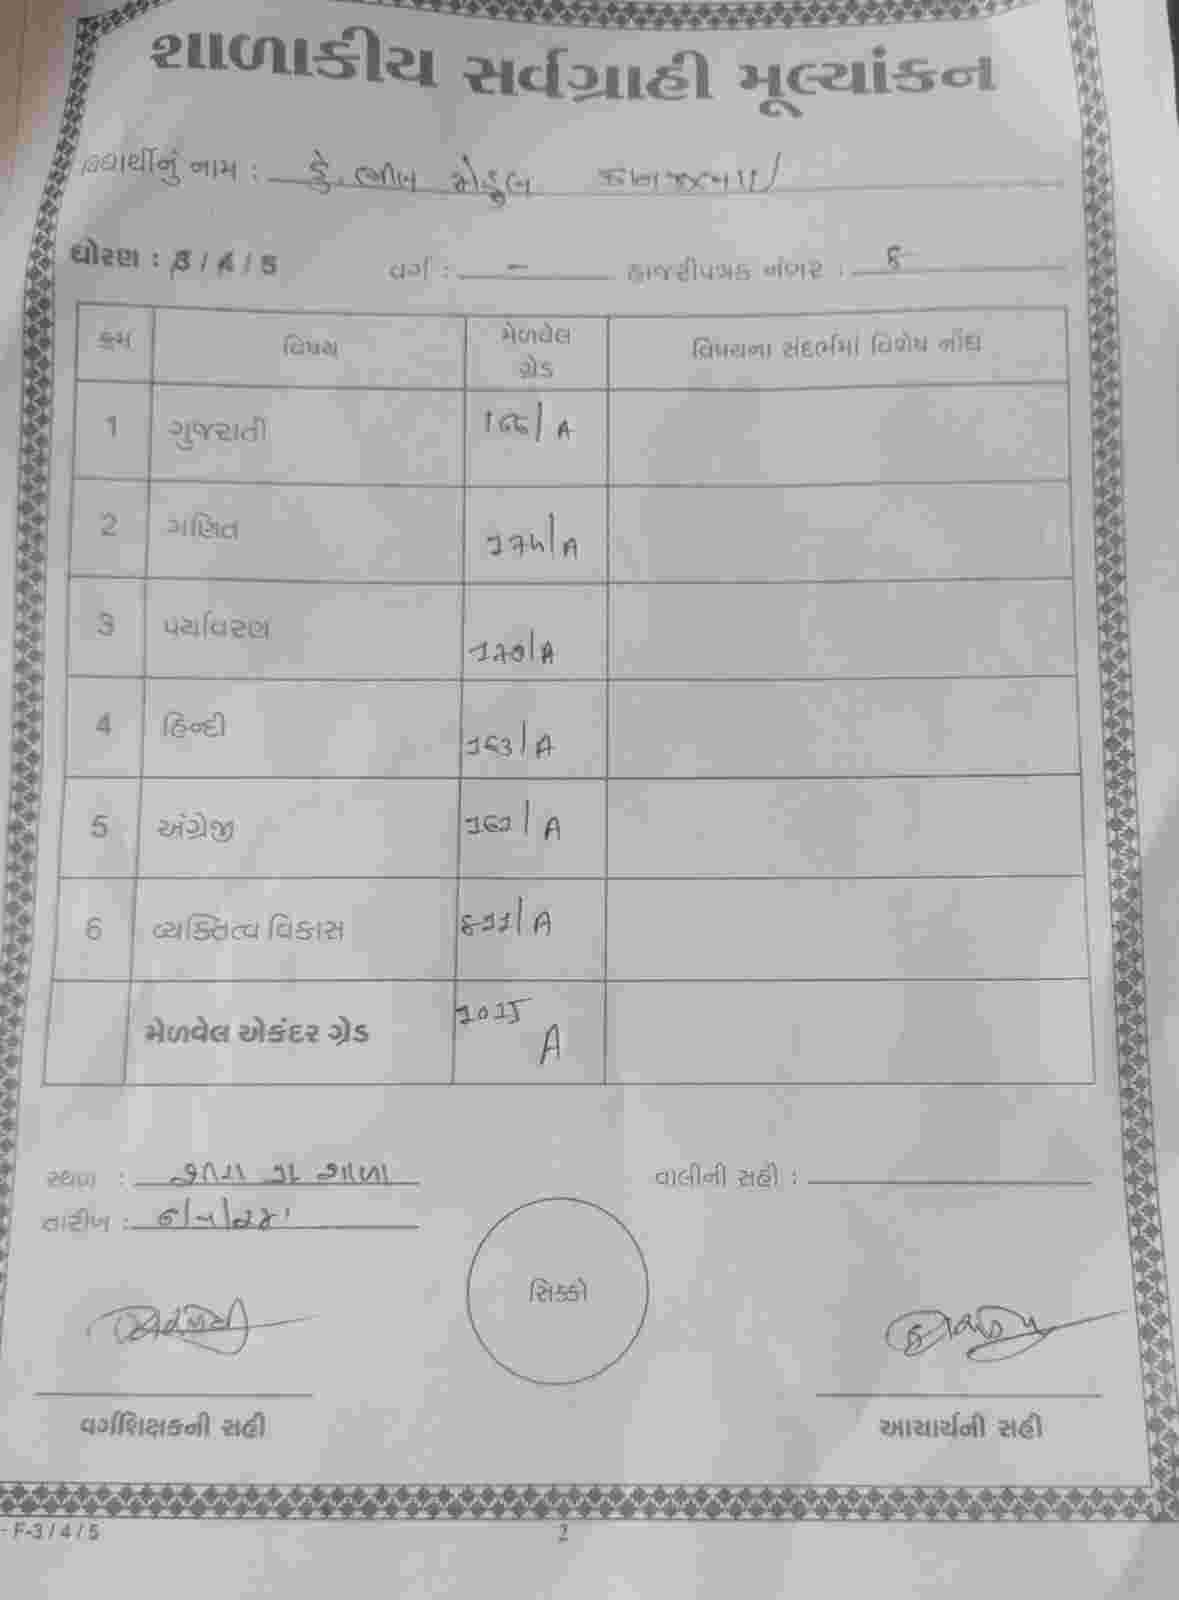 શાળાકીય સર્વગ્રાહી મૂલ્યાંકન
વિદ્યાર્થીનું નામ :
ધોરણ : 3 / 4 / 5 વર્ગ : - હાજરીપત્રક નંબર : ૬
ક્રમ વિષય મેળવેલ ગ્રેડ વિષયના સંદર્ભમાં વિશેષ નોંધ
1 ગુજરાતી ૧૬૬/A
2 ગણિત ૧૭૫/A
3 પર્યાવરણ ૧૭૦/A
4 હિન્દી ૧૬૩/A
5 અંગ્રેજી ૧૬૧/A
6 વ્યક્તિત્વ વિકાસ A
મેળવેલ એકંદર ગ્રેડ A
સ્થળ : શાળા વાલીની સહી :
તારીખ :
સિક્કો
વર્ગશિક્ષકની સહી આચાર્યની સહી
- F-3 / 4 / 5 2